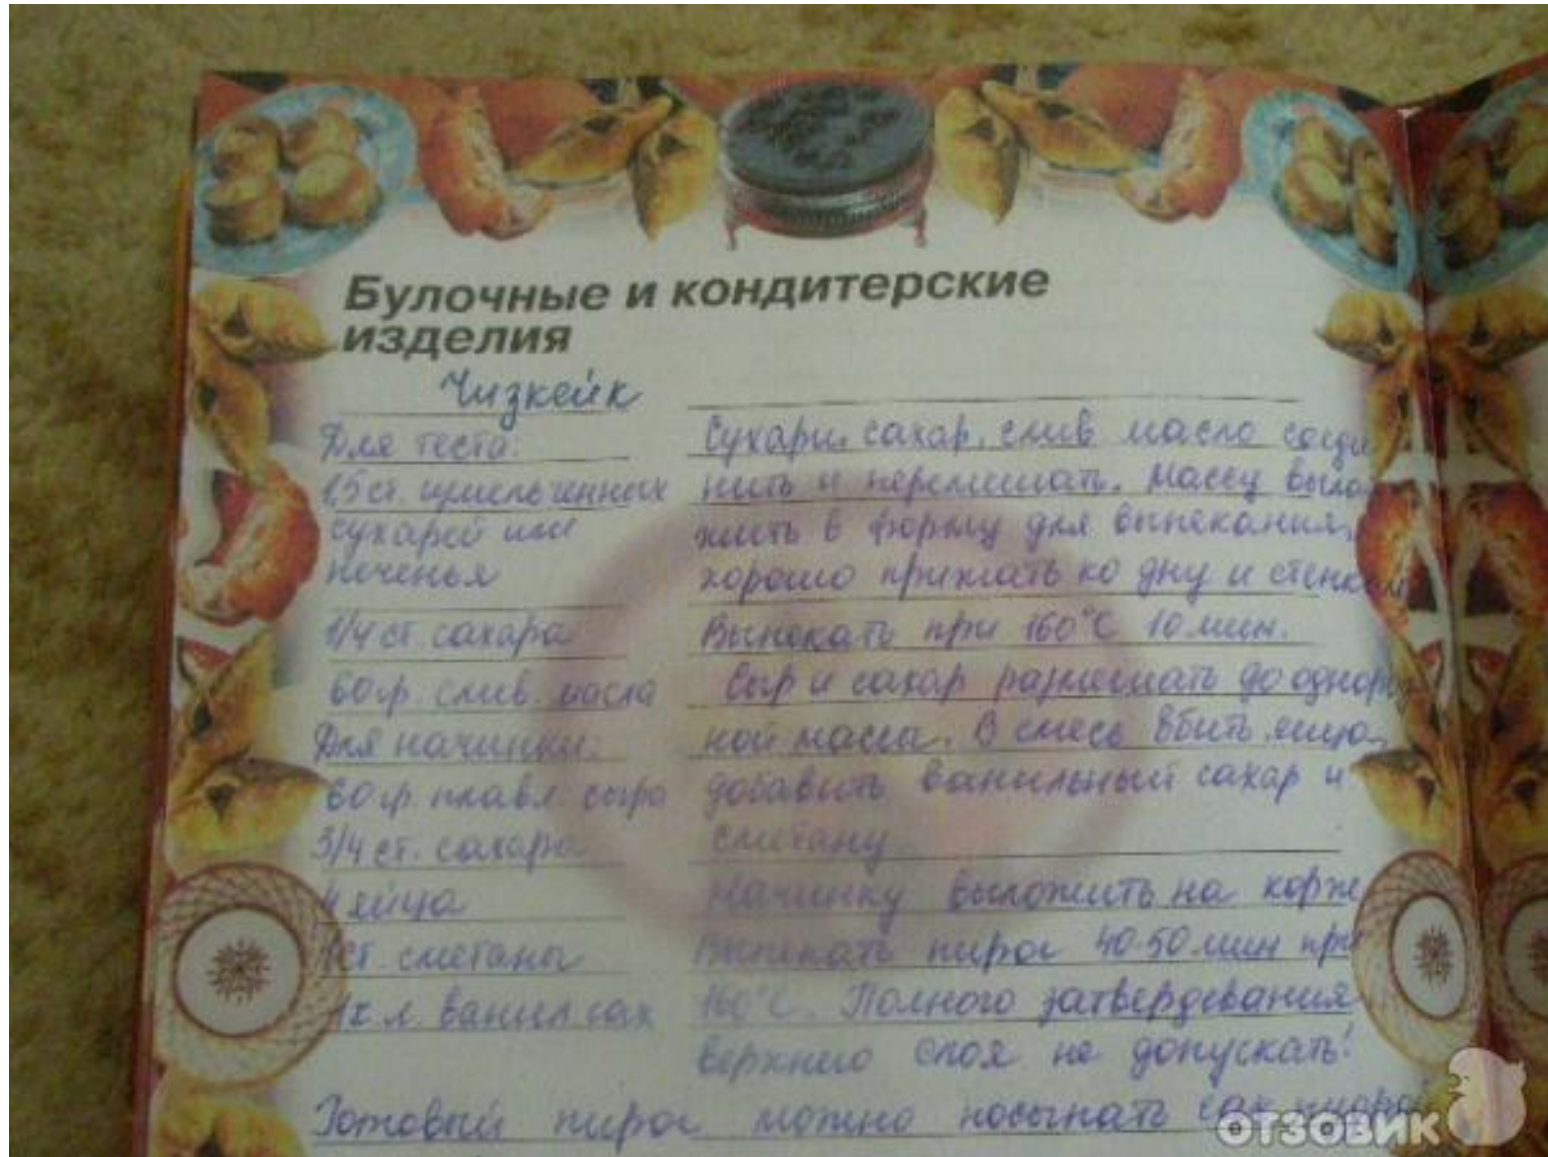 Булочные и кондитерские
изделия
Чизкейк
Для теста:
1,5 ст. измельченных
сухарей или
печенья
1/4 ст. сахара
60 гр. слив. масла
Для начинки:
60 гр. плавл. сыра
3/4 ст. сахара
4 яйца
1 ст. сметаны
1 ч. л. ванил сах
Сухари, сахар, слив масло соеди
нить и перемешать. Массу выло
жить в форму для выпекания,
хорошо прижать ко дну и стенкам
Выпекать при 160°С 10 мин.
Сыр и сахар размешать до однород
ной массы. В смесь вбить яйца,
добавить ванильный сахар и
сметану
Начинку выложить на корже
Выпекать пирог 40-50 мин при
160°С. Полного затвердевания
верхнего слоя не допускать!
Готовый пирог можно посыпать сах.
ОТЗОВИК